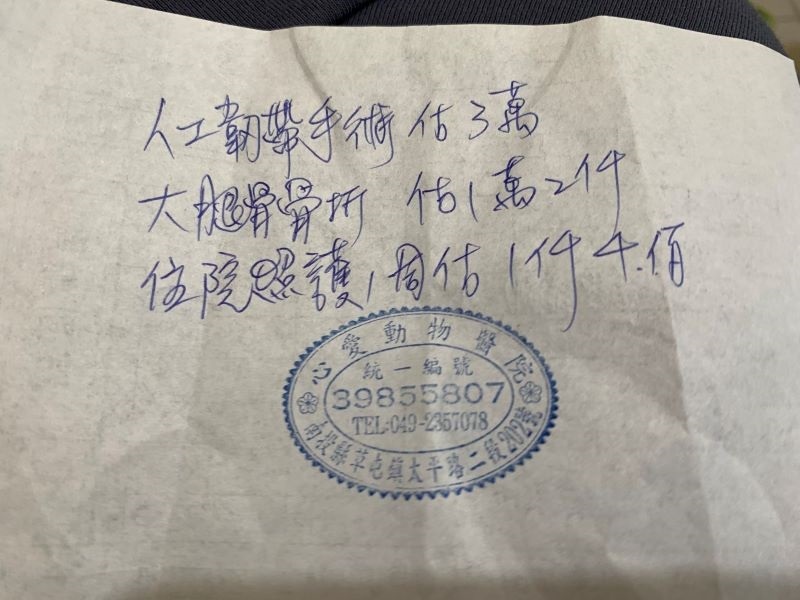 人工韌帶手術 估3萬
大腿骨骨折 估1萬2仟
住院照護1周估1仟4佰
心愛動物醫院
統一編號
39855807
TEL:049-2357078
南投縣草屯鎮太平路二段202號